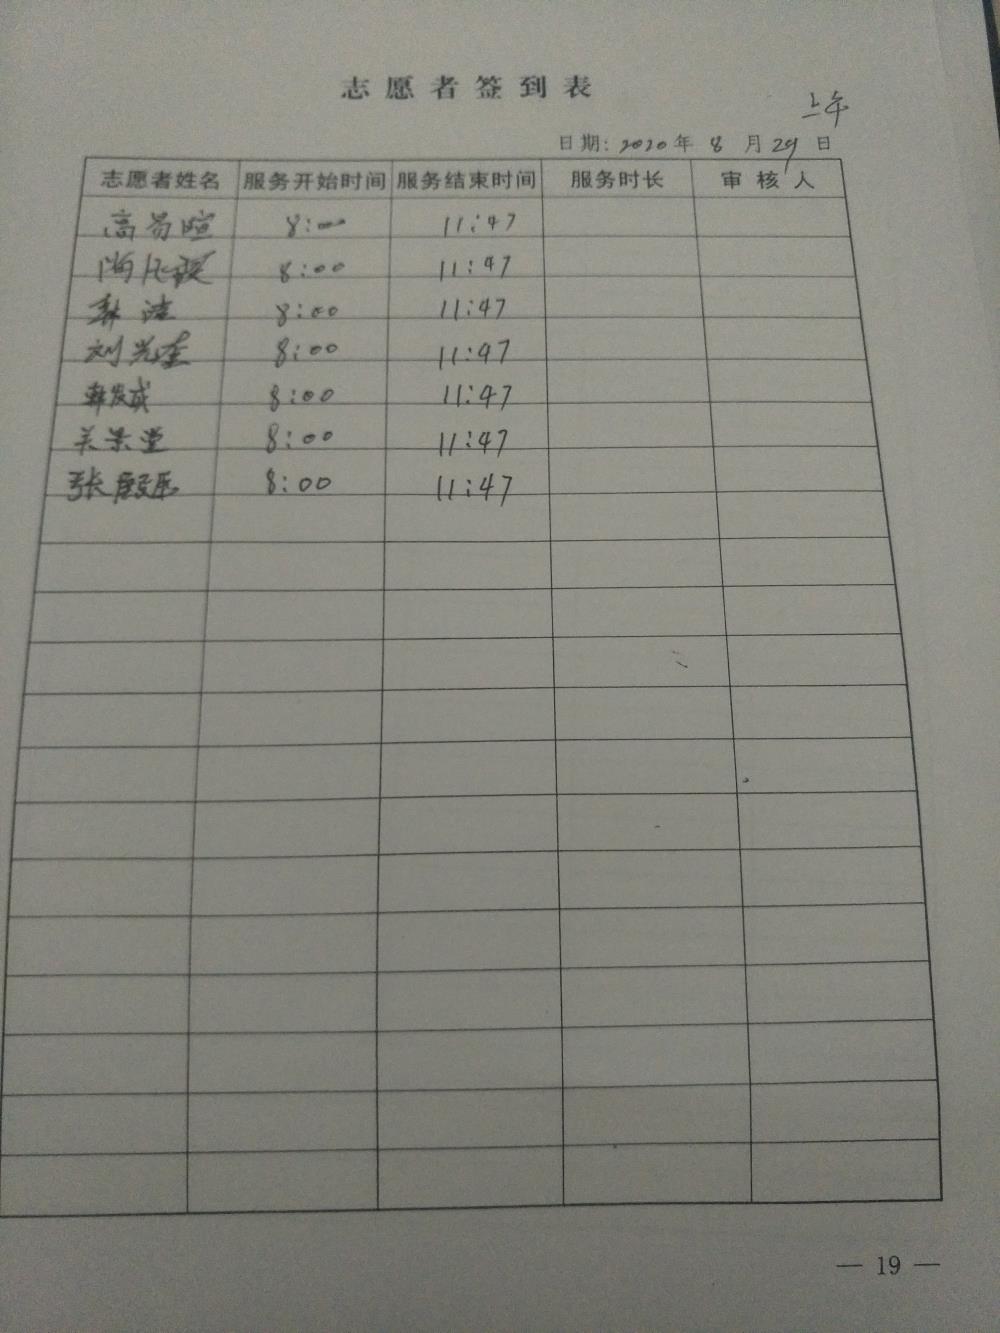 志愿者签到表
上午
日期: 2020年 8月 29日
志愿者姓名 服务开始时间 服务结束时间 服务时长 审核人
高易暄 8:00 11:47
8:00 11:47
8:00 11:47
刘光奎 8:00 11:47
韩发成 8:00 11:47
关景堂 8:00 11:47
张殿臣 8:00 11:47
— 19 —